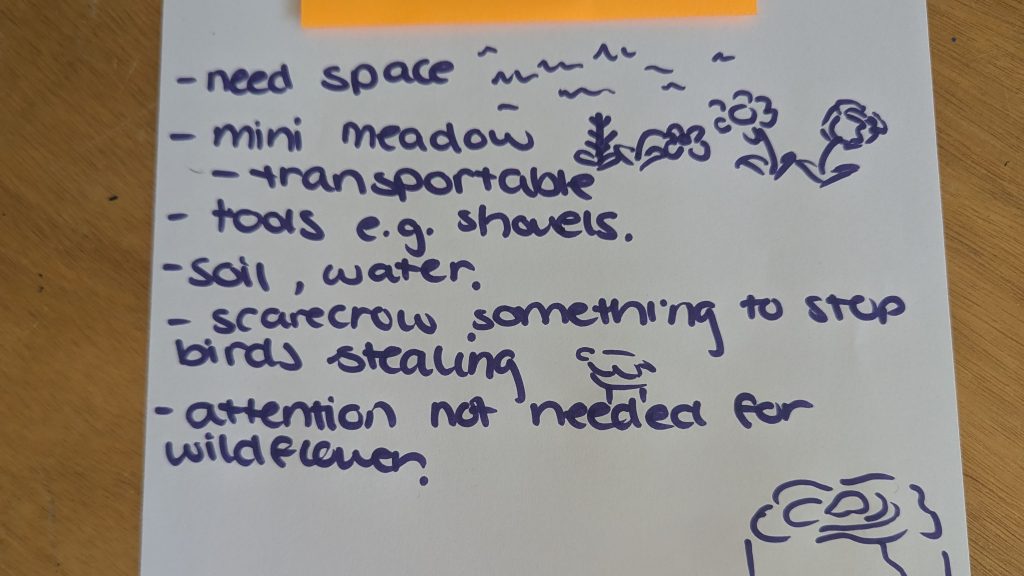 - need space
- mini meadow
- transportable
- tools e.g. shovels.
- soil, water.
- scarecrow something to stop
birds stealing
- attention not needed for
wildflower.